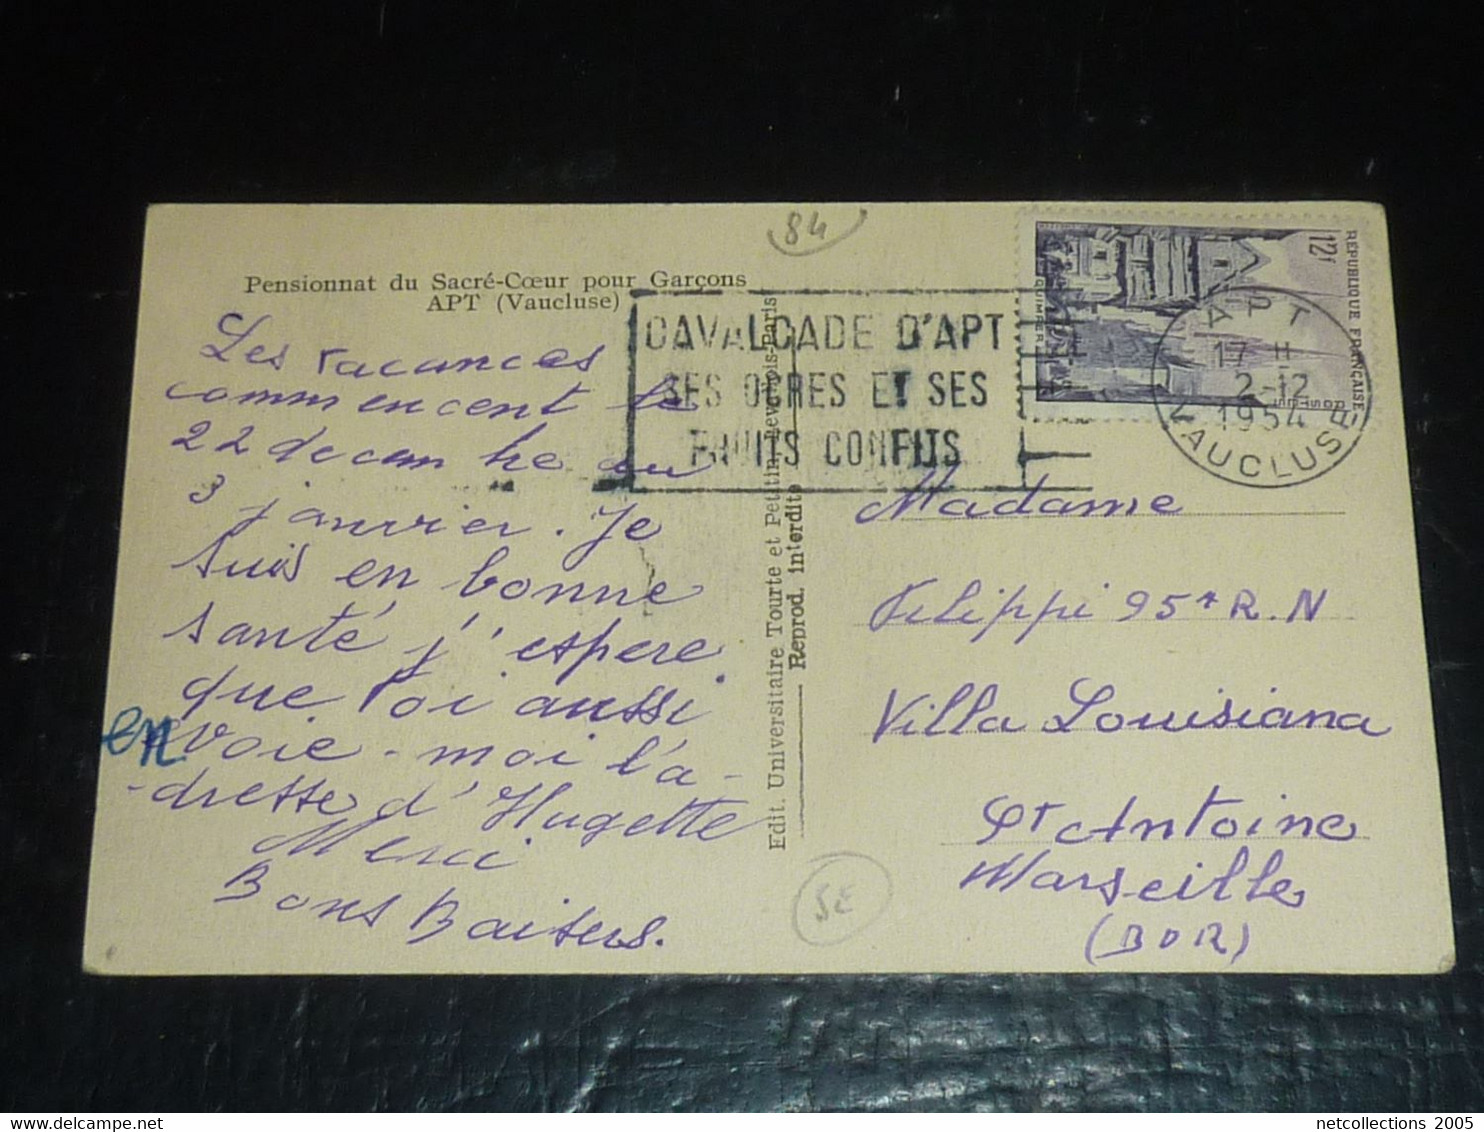 84
Pensionnat du Sacré-Cœur pour Garçons
APT (Vaucluse)
Les vacances
commencent le
22 decembre au
3 janvier. Je
suis en bonne
santé j'espere
que toi aussi
envoie-moi l'a-
-dresse d'Hugette
Merci
Bons Baisers.
Edit. Universitaire Tourte et Petitin Levallois-Paris
Reprod. interdite
CAVALCADE D'APT
SES OCRES ET SES
FRUITS CONFITS
RÉPUBLIQUE FRANÇAISE
POSTES
12f
QUIMPER
APT
17 H
2-12
1954
VAUCLUSE
Madame
Filippi 95 R.N
Villa Louisiana
St Antoine
Marseille
(BDR)
SE
netcollections 2005